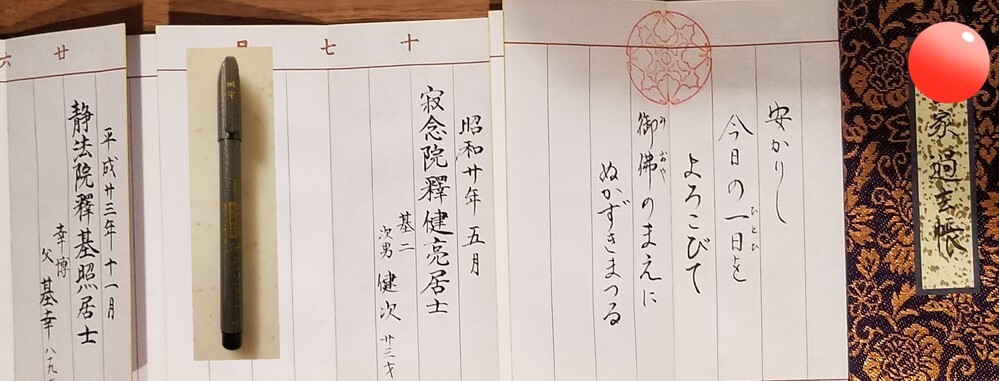 家過去帳
安かりし
今日の一日を
ひとひ
よろこびて
御佛のまえに
みおや
ぬかずきまつる
十七日
昭和廿年 五月
寂念院釋健亮居士
基二
次男 健次 廿三才
廿六
平成廿三年 十一月
静法院釋基照居士
幸博
父 基幸 八十九